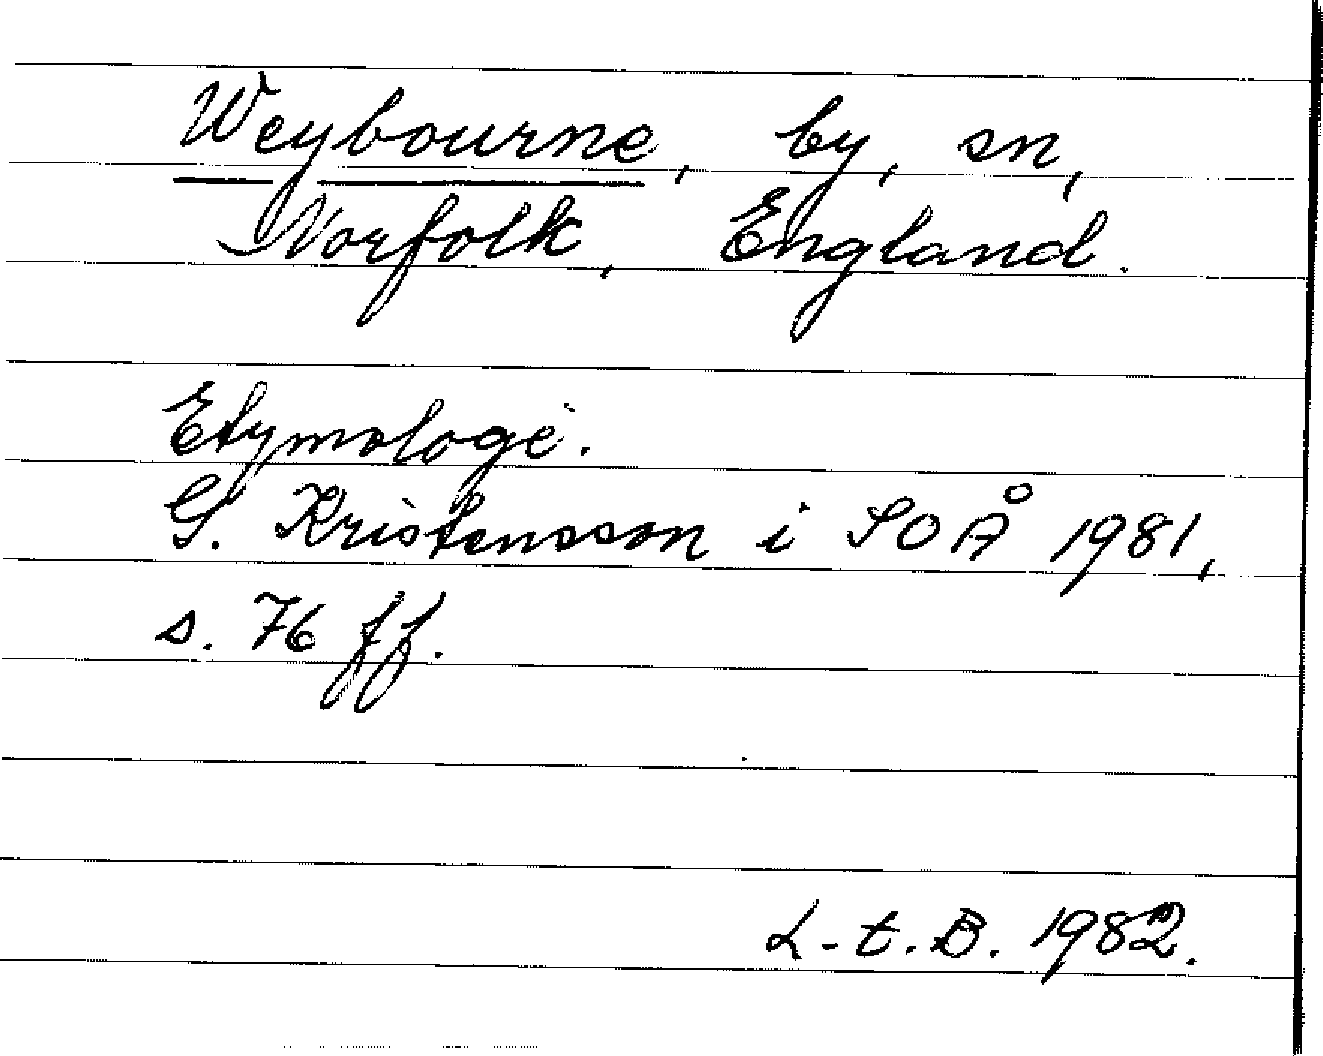 Weybourne, by, sn,
Norfolk, England.
Etymologi.
G. Kristensson i SOÅ 1981,
s. 76 ff.
L-t. B. 1982.